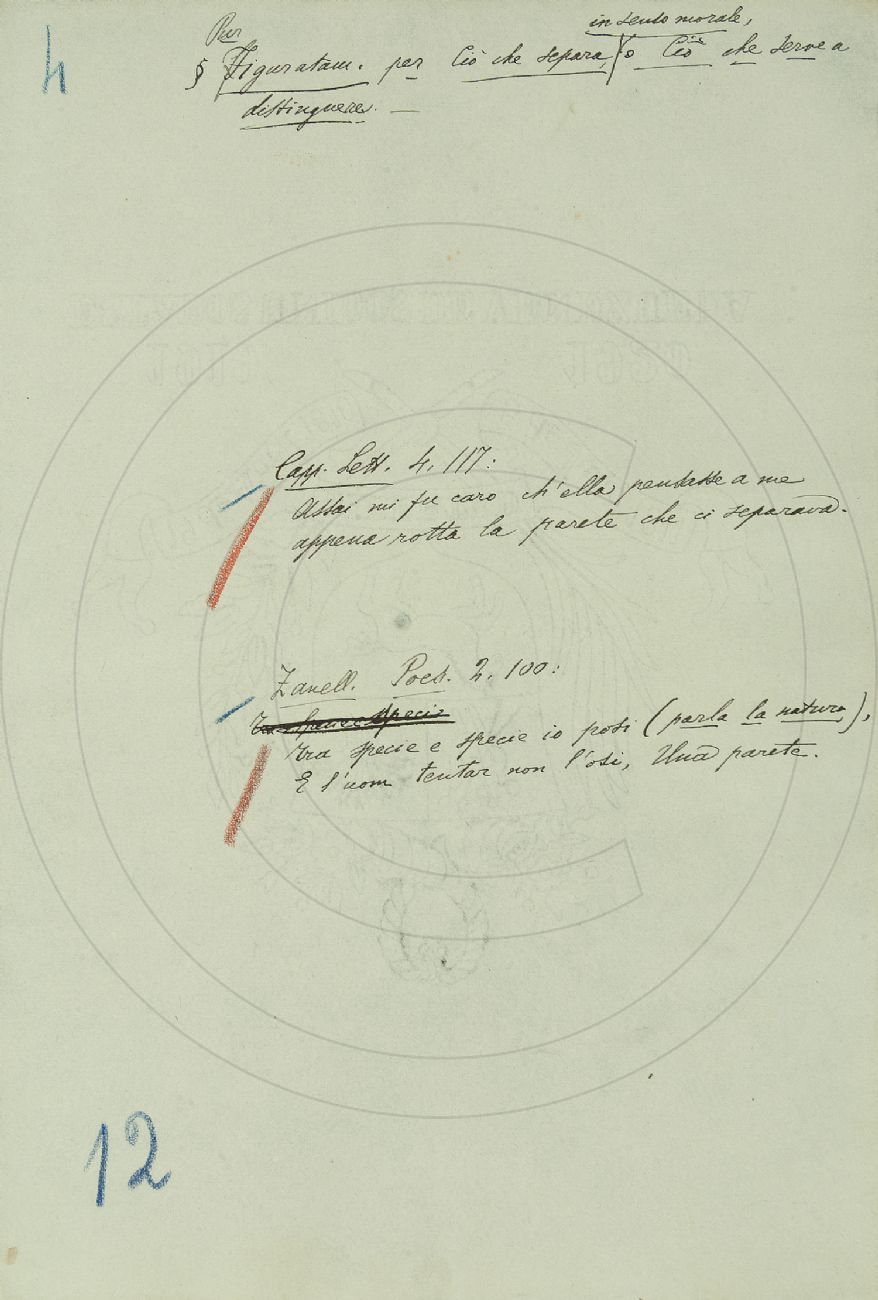 4
Pur
in senso morale,
§ Figuratam. per Ciò che separa, o Ciò che serve a
distinguere. —
Capp. Lett. 4. 117:
Assai mi fu caro ch'ella pensasse a me
appena rotta la parete che ci separava.
Zanell. Poes. 2. 100:
Tra specie e specie
Tra specie e specie io posi (parla la natura),
E l'uom tentar non l'osi, Una parete.
12